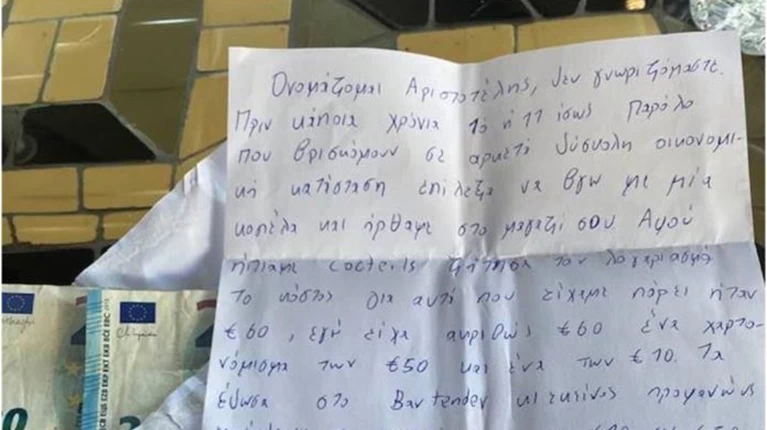 Ονομάζομαι Αριστοτέλης, δεν γνωριζόμαστε.
Πριν κάποια χρόνια 10 ή 11 ίσως παρόλο
που βρισκόμουν σε αρκετά δύσκολη οικονομι-
κή κατάσταση επίλεξα να βγω με μία
κοπέλα και ήρθαμε στο μαγαζί σου. Αφού
ήπιαμε cocteils ζήτησα τον λογαριασμό
Το κόστος για αυτά που είχαμε πάρει ήταν
€60, εγώ είχα ακριβώς €60 ένα χαρτο-
νόμισμα των €50 και ένα των €10. Τα
έδωσα στο Bartender κι εκείνος προφανώς
BCE ECB